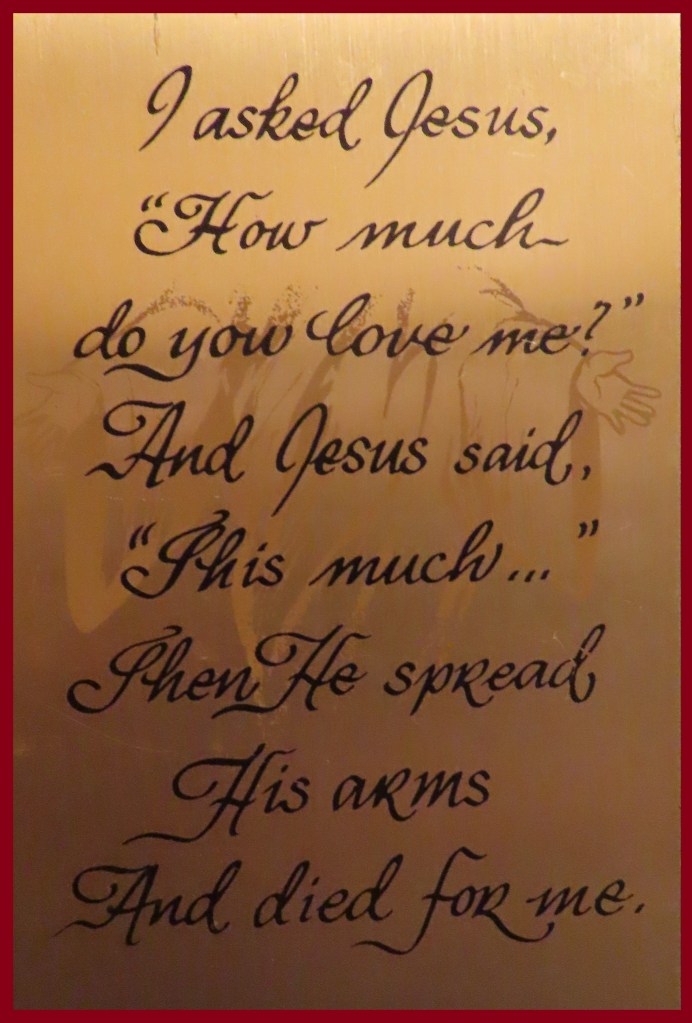 I asked Jesus,
"How much
do you love me?"
And Jesus said,
"This much..."
Then He spread
His arms
And died for me.